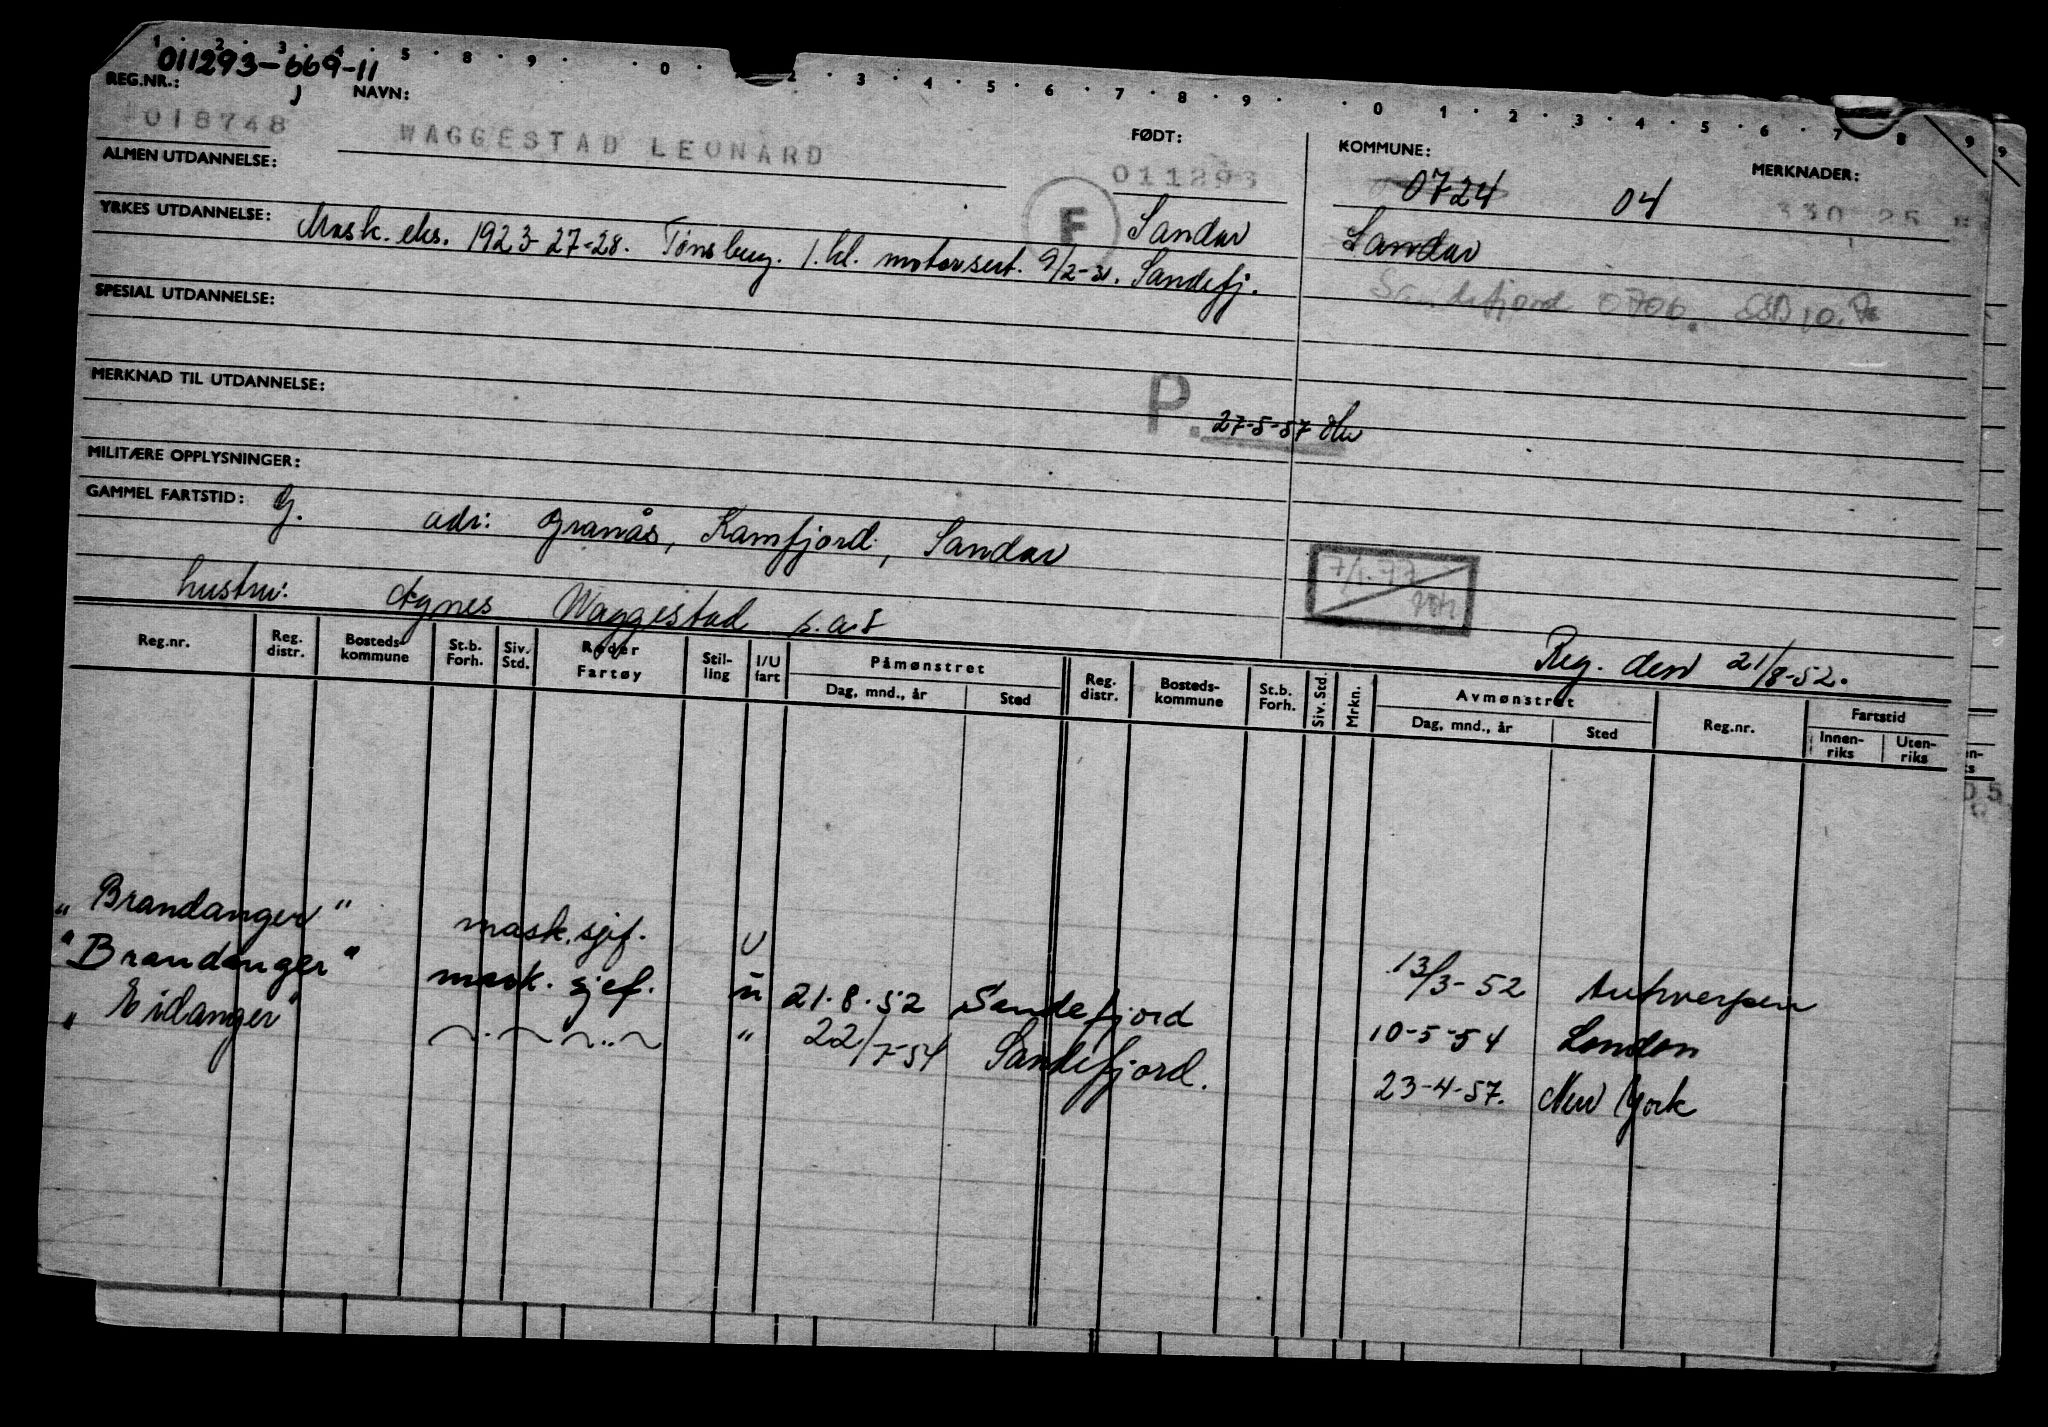 1 · 2 · 3 · 4 · 5 · 8 · 9 · · 0 · 2 · 3 · 4 · 5 · 6 · 7 · 8 · 9 · · 0 · 1 · 2 · 3 · 4 · 5 · 6 · 7 · 8 9 9
011293-669-11
REG.NR.: NAVN:
018748 WAGGESTAD LEONARD FØDT: 011293 KOMMUNE: 0724 04 MERKNADER: 330 25
ALMEN UTDANNELSE:
F Sandar Sandar
YRKES UTDANNELSE: Mask. eks. 1923-27-28. Tønsberg. 1. kl. motorsert. 9/2-31. Sandefj.
Sandefjord 0706.
SPESIAL UTDANNELSE:
MERKNAD TIL UTDANNELSE:
P. 27-5-57
MILITÆRE OPPLYSNINGER:
GAMMEL FARTSTID: G. adr: Granås, Kamfjord, Sandar
7/1.77
hustru: Agnes Waggestad s.a.s
Reg. den 21/8-52.
Reg.nr. Reg. distr. Bosteds-kommune St.b. Forh. Siv. Std. Reder Fartøy Stil-ling I/U fart Påmønstret Dag, mnd., år Sted Reg. distr. Bosteds-kommune St.b. Forh. Siv. Std. Mrkn. Avmønstret Dag, mnd., år Sted Reg.nr. Fartstid Innen-riks Uten-riks
„Brandanger" mask.sjef. U 13/3-52 Antwerpen
"Brandanger" mask. sjef. u 21.8.52 Sandefjord 10-5-54 London
„Eidanger" ~.~~..~ " 22/7-54 Sandefjord. 23-4-57. New York